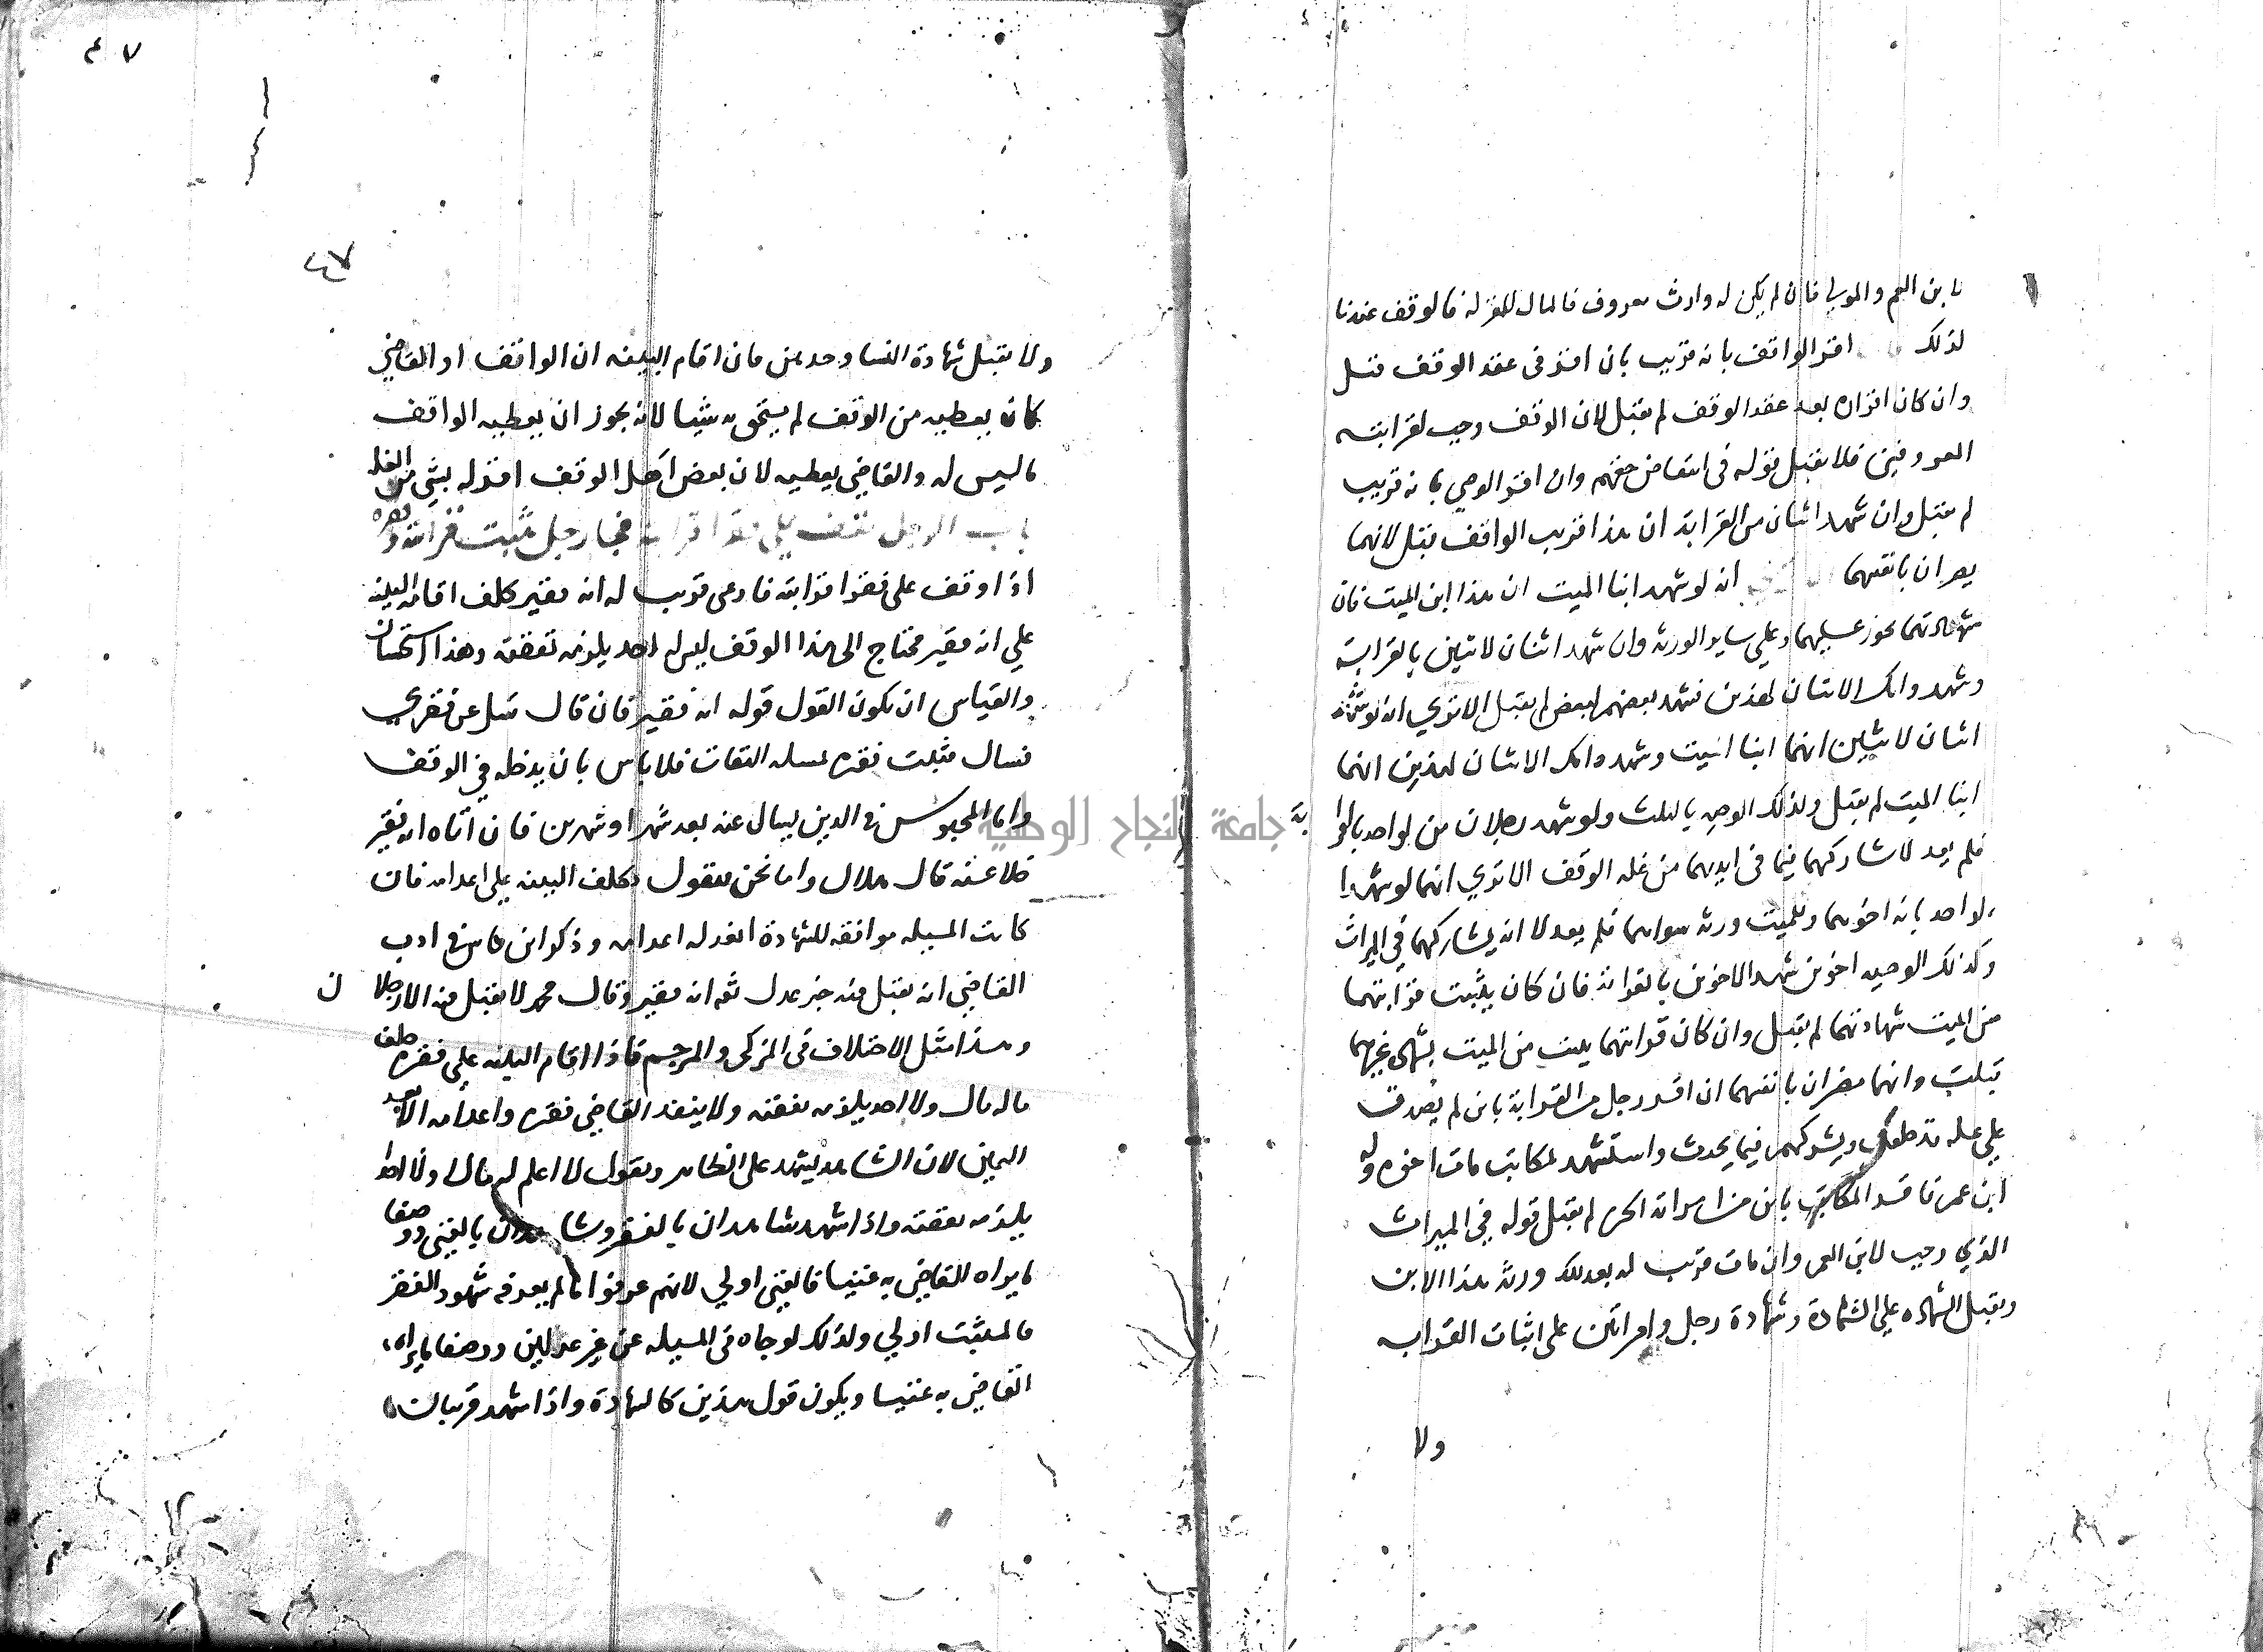 بابن العم والمولي فان لم يكن له وارث معروف فالمال للمقر له فالوقف عندنا
لذلك اقر الواقف بانه قريب بان اقر في عقد الوقف قبل
وان كان اقراره بعد عقد الوقف لم يقبل لان الوقف وجب لقرابته
المعروفين فلا يقبل قوله في انتقاص حقهم وان اقر الوصي بانه قريب
لم يقبل وان شهد اثنان من القرابة ان هذا قريب الواقف يقبل لانهما
يضران بانفسهما انه لو شهد ابنا الميت ان هذا ابن الميت فان
شهادتهما يجوز عليهما وعلي ساير الورثه وان شهد اثنان لاثنين بالقرابة
وشهد ذانك الاثنان لهذين فشهد بعضهم لبعض لم يقبل الا تري انه لو شهد
اثنان لاثنين انهما ابنا الميت وشهد ذانك الاثنان لهذين انهما
ابنا الميت لم يقبل وكذلك الوصيه بالثلث ولو شهد رجلان من لواحد بالقرابة
فلم يعدلا شاركهما فيما في ايديهما من غله الوقف الا تري انهما لو شهدا
لواحد بانه اخوهما وللميت ورثه سواهما فلم يعدلا انه يشاركهما في الميراث
وكذلك الوصيه اخوين شهدا لاخوين بالقرابة فان كان يثبت قرابتهما
من الميت شهادتهما لم يقبل وان كان قرابتهما يثبت من الميت بشهادة غيرهما
قبلت وانهما مضران بانفسهما ان اقر رجل من القرابة بابن لم يصدق
علي غله قد ويشركهم فيما يحدث واستشهد لمكاتب مات اخوه وله
ابن عم فاقر المكاتب بابن من امراته الحرة لم يقبل قوله في الميراث
الذي وجب لابن العم وان مات قريب له بعد ذلك ورثه هذا الابن
ويقبل الشهاده علي الشهادة وشهادة رجل وامراتين علي اثبات القرابه
ولا
٤٧
٤٧
ولا يقبل شهادة النسا وحدهن فان اقام البينه ان الواقف او القاضي
كان يعطيه من الوقف لم يستحق به شيا لانه يجوز ان يعطيه الواقف
ما ليس له والقاضي يعطيه لان بعض اهل الوقف اقر له بشي من الغله
باب الرجل يقف علي فقرا قرابته فجا رجل يثبت قرابته وفقره
اذا وقف علي فقرا قرابته فادعي قريب له انه فقير كلف اقامه البينه
علي انه فقير محتاج الي هذا الوقف ليس له احد يلزمه نفقته وهذا استحسان
والقياس ان يكون القول قوله انه فقير فان قال سل عن فقري
فسال فثبت فقره بمسله الثقات فلا باس بان يدخله في الوقف
واما المحبوس في الدين يسال عنه بعد شهر او شهرين فان اتاه انه فقير
خلا عنه قال هلال واما نحن فنقول يكلف البينه علي اعدامه فان
كانت المسله موافقه للشهادة انفذ له اعدامه وذكر ابن في ادب
القاضي انه يقبل فيه خبر عدل ثقه انه فقير وقال محمد لا يقبل فيه الا رجلان
وهذا مثل الاختلاف في المزكي والمرجم فاذا اقام البينه علي فقره حلف
ما له مال ولا احد يلزمه نفقته ولا ينفذ القاضي فقره واعدامه الا بعد
اليمين لان الشاهد يشهد علي الظاهر ويقول لا اعلم له مال ولا احد
يلزمه نفقته واذا شهد شاهدان بالفقر وشاهدان بالغني ووصفا
ما يراه القاضي به غنيا فالغني اولي لانهم عرفوا ما لم يعرفه شهود الفقر
فالمثبت اولي وكذلك لو جاه في المسله عن غير عدلين ووصفا ما يراه
القاضي به غنيا ويكون قول هذين كالشهادة واذا شهد قريبان
جامعة النجاح الوطنية